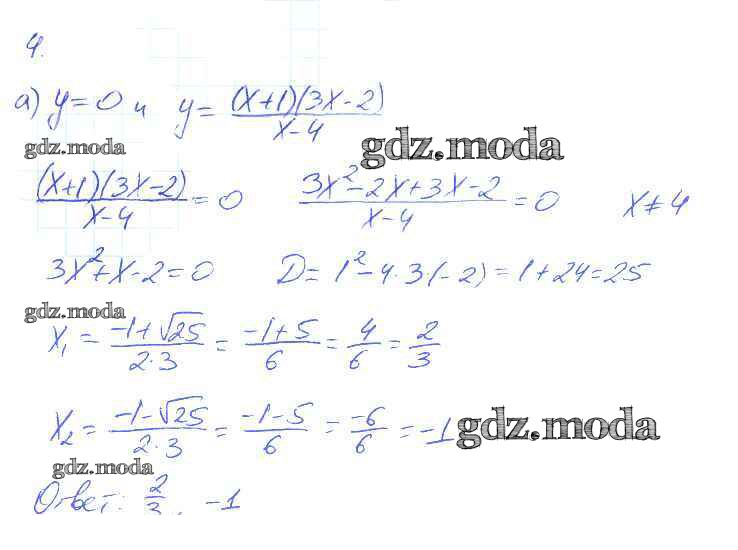 4.
а) y=0 и y= (x+1)(3x-2)/x-4
gdz.moda
gdz.moda
(x+1)(3x-2)/x-4 = 0 3x²-2x+3x-2/x-4 = 0 x≠4
3x²+x-2=0 D= 1²-4·3·(-2)=1+24=25
gdz.moda
x₁ = -1+√25/2·3 = -1+5/6 = 4/6 = 2/3
x₂ = -1-√25/2·3 = -1-5/6 = -6/6 = -1
gdz.moda
gdz.moda
Ответ: 2/3, -1